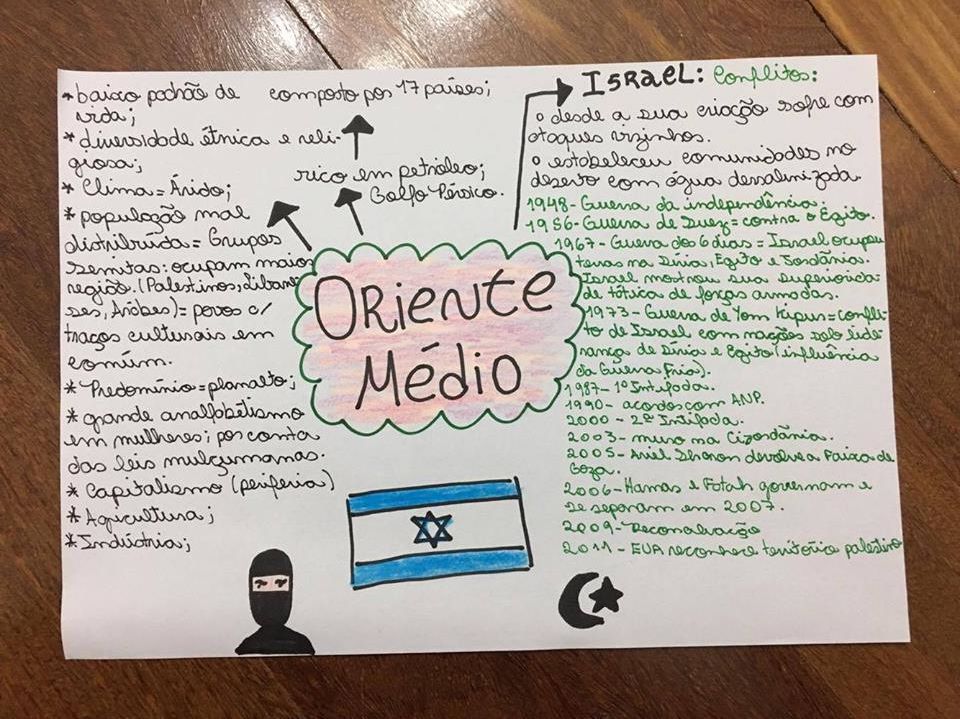 Oriente
Médio
* baixo padrão de
vida;
* diversidade étnica e reli-
giosa;
* Clima = Árido;
* população mal
distribuída = Grupos
semitas: ocupam maior
região. (Palestinos, Libane
ses, Árabes) = povos c/
traços culturais em
comum.
* Predomínio = planalto;
* grande analfabetismo
em mulheres; por conta
das leis mulçumanas.
* Capitalismo (periferia)
* Agricultura;
* Indústria;
composto por 17 países;
rico em petróleo;
Golfo Pérsico.
ISRAEL: Conflitos:
o desde a sua criação sofre com
ataques vizinhos.
o estabeleceu comunidades no
deserto com água dessalinizada.
1948 - Guerra da independência.
1956 - Guerra de Suez = contra o Egito.
1967 - Guerra dos 6 dias = Israel ocupou
terras na Síria, Egito e Jordânia.
Israel mostrou sua superiorida-
de tática de forças armadas.
1973 - Guerra de Yom Kipur = confli-
to de Israel com nações pela lide-
rança de Síria e Egito (influência
da Guerra Fria).
1987 - 1ª Intifada.
1990 - acordos com ANP.
2000 - 2ª Intifada.
2003 - muro na Cisjordânia.
2005 - Ariel Sharon devolve a Faixa de
Gaza.
2006 - Hamas e Fatah governam e
se separam em 2007.
2009 - Reconciliação
2011 - EUA reconhece território palestino